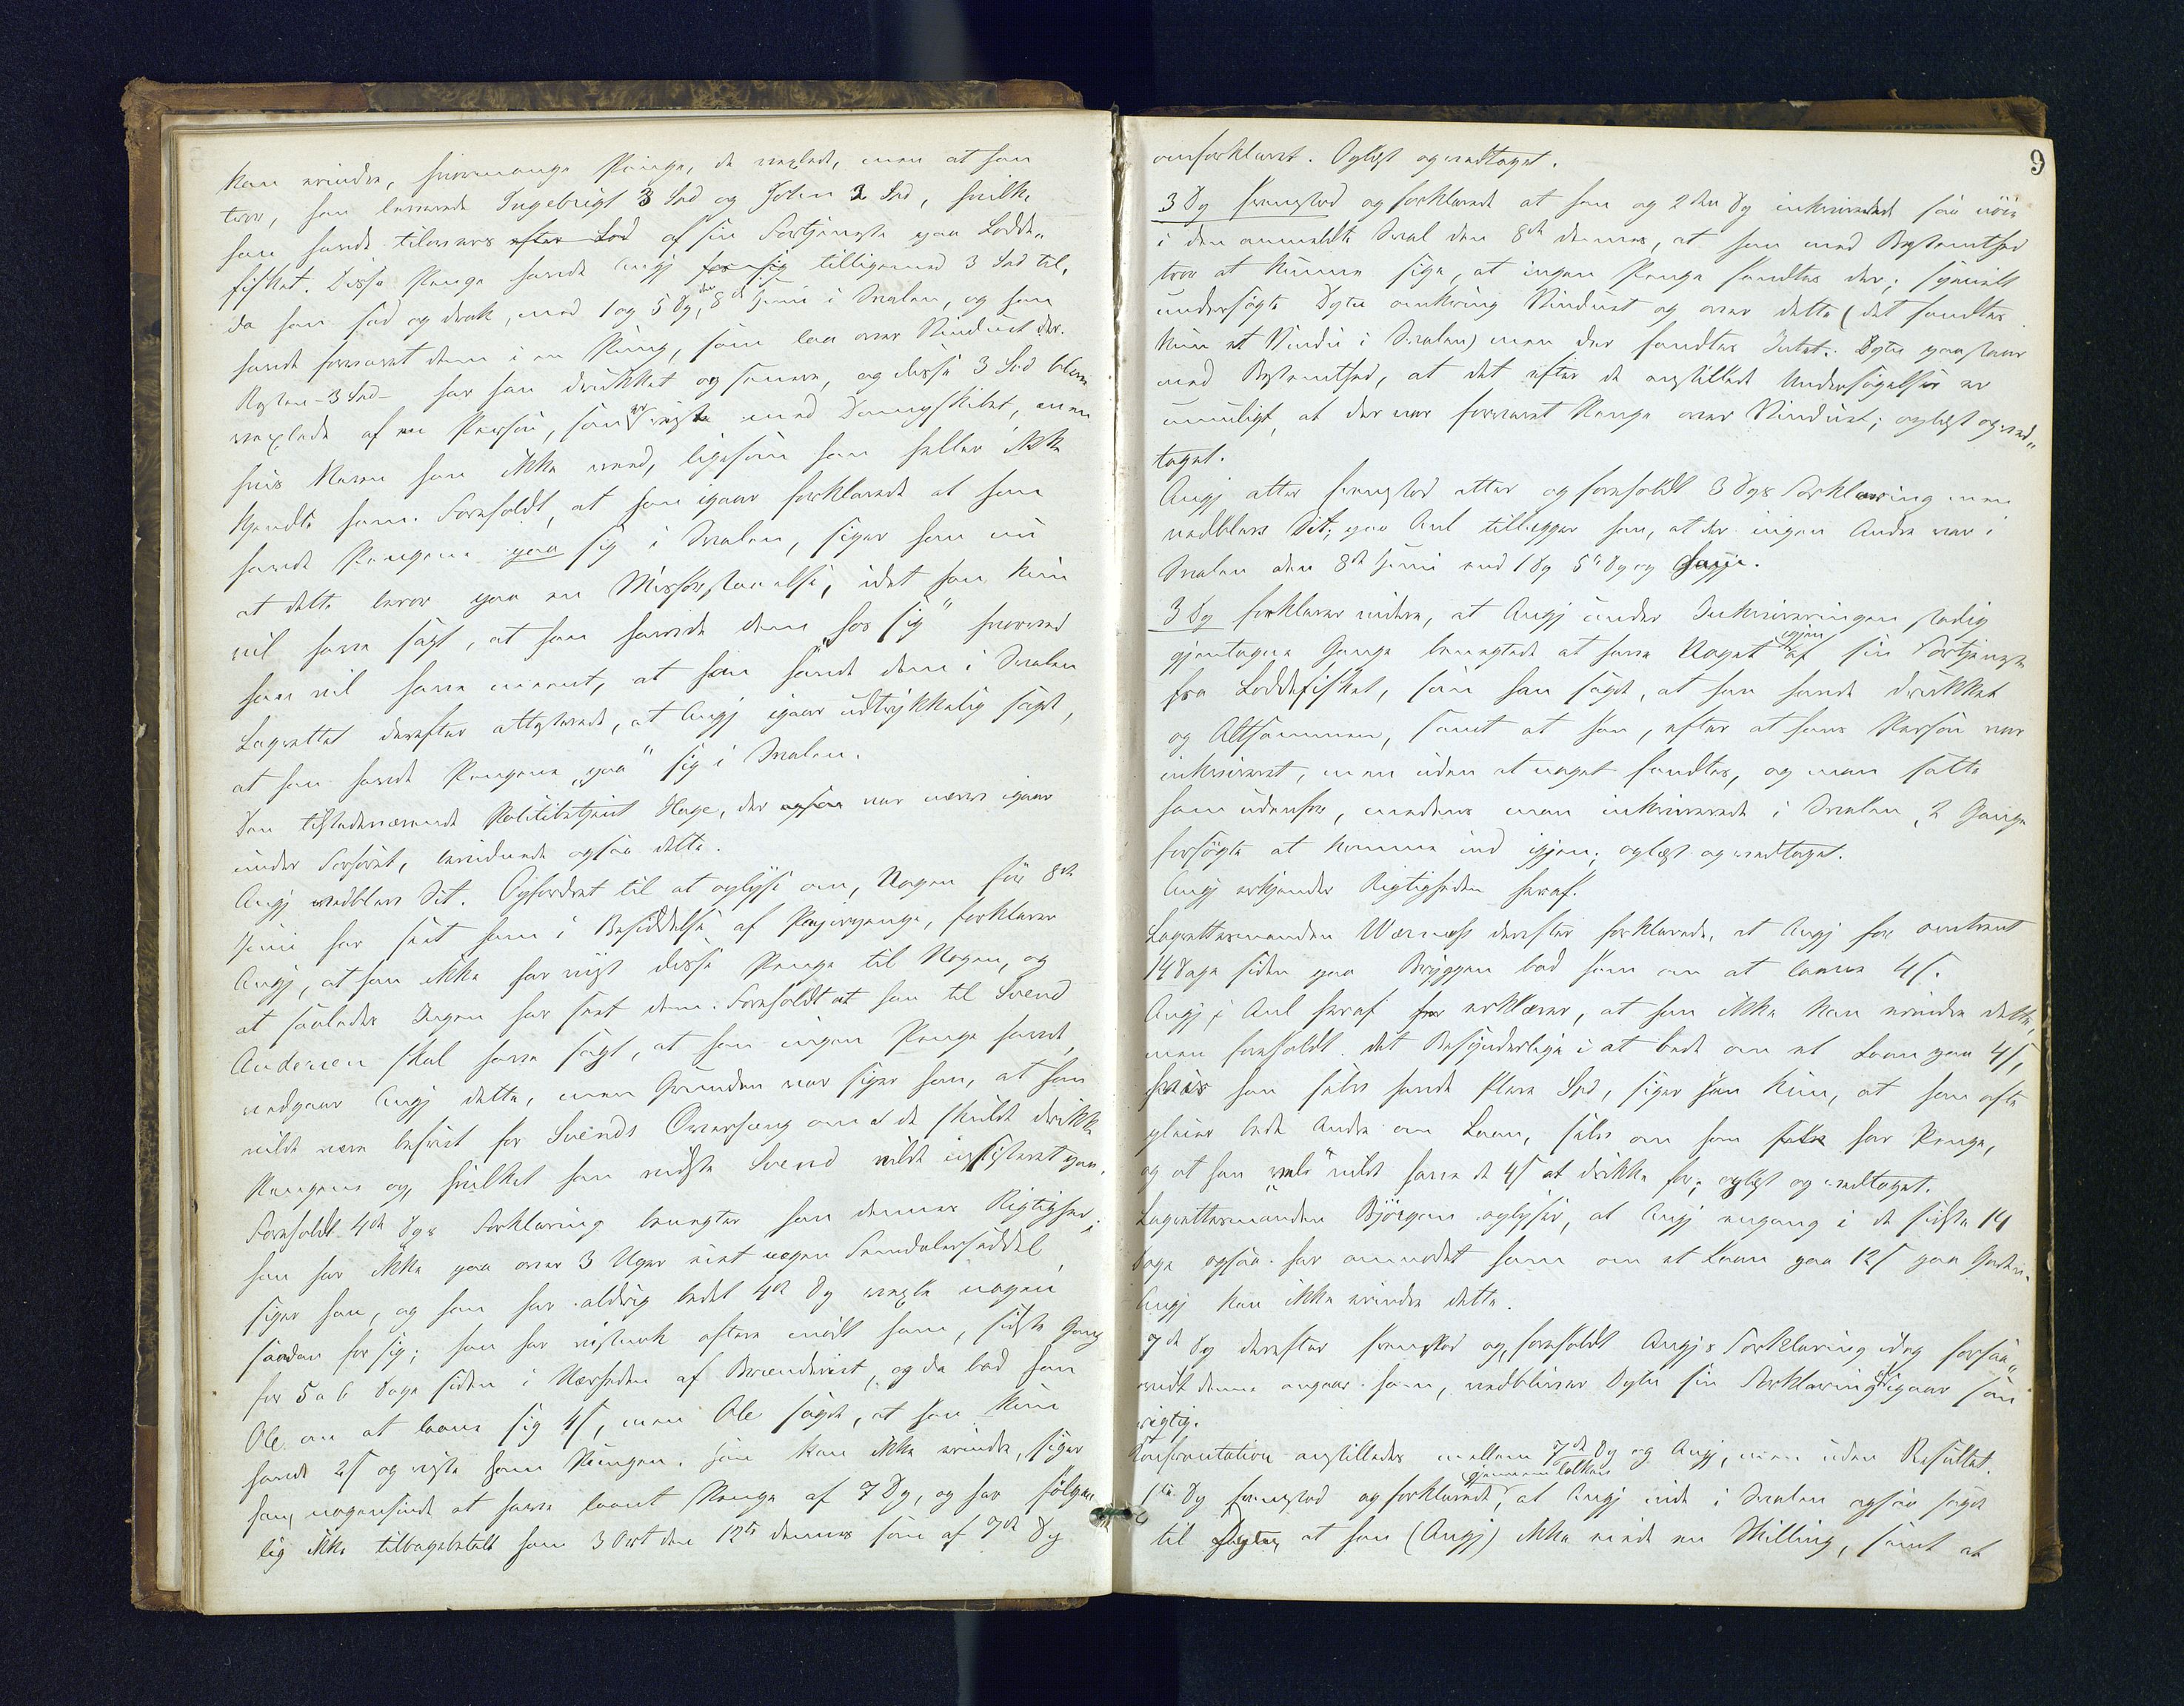 kan erindre, hvormange Penge, de vexlede, men at han
tror, han leverede Ingebrigt 3 Spd og John 2 Spd, hvilke
han havde tilovers efter Lod af sin Fortjeneste paa Lodde-
fisket. Disse Penge havde Angj for sig tilligemed 3 Spd til,
da han sad og drak, med 1 og 5 Vg, den 8de Juni i Svalen, og han
havde forvaret dem i en Pung, som laa over Vinduet der.
Resten - 3 Spd - har han drukket op senere, og disse 3 Spd bleve
vexlede af en Person, som er reist med Dampskibet, men
hvis Navn han ikke veed, ligesom han heller ikke
kjendte ham. Foreholdt, at han igaar forklarede at han
havde Pengene paa sig i Svalen, siger han nu
at dette beror paa en Misforstaaelse, idet han kun
vil have sagt, at han havde dem "hos sig" hvorved
han vil have meent, at han havde dem i Svalen
Lagrettet derefter attesterede, at Angj igaar udtrykkelig sagde,
at han havde Pengene "paa" sig i Svalen.
Den tilstedeværende Politibetjent Hage, der ogsaa var nærvs igaar
under Forhøret, bevidnede ogsaa dette.
Angj vedblev Sit. Opfordret til at oplyse om, Nogen før 8de
Juni har seet ham i Besiddelse af Papirpenge, forklarer
Angj, at han ikke har viist disse Penge til Nogen, og
at saaledes Ingen har seet dem. Foreholdt at han til Svend
Andersen skal have sagt, at han ingen Penge havde,
vedgaar Angj dette, men Grunden var siger han, at han
vilde være befriet for Svends Overhæng om at de skulde drikke
Pengene op, hvilket han vidste Svend vilde insisteret paa.
Foreholdt 4de Vgs Forklaring benegter han dennes Rigtighed;
han har ikke paa over 3 Uger eiet nogen Femdalerseddel
siger han, og han har aldrig bedet 4de Vg vexle nogen
saadan for sig; han har vistnok oftere mødt ham, sidste Gang
for 5 a 6 Dage siden i Nærheden af Brændeviet, og da bad han
Ole om at laane sig 4 s, men Ole sagde, at han kun
havde 2 s og viste ham Pungen. Han kan ikke erindre, siger
han, nogensinde at have laant Penge af 7 Vg, og har følge-
lig ikke tilbagebetalt ham 3 Ort den 12te dennes som af 7de Vg
9
omforklaret. Oplæst og vedtaget.
3 Vg fremstod og forklarede at han og 2den Vg inkvirerede saa nøie
i den ommeldte Sval den 8de dennes, at han med Bestemthed
tror at kunne sige, at ingen Penge fandtes der; specielt
undersøgte Dptn omkring Vinduet og over dette (det fandtes
kun et Vindu i Svalen) men der fandtes Intet. Dptn paastaar
med Bestemthed, at det efter de anstillede Undersøgelser er
umuligt, at der var forvaret Penge over Vinduet; oplæst og ved-
taget.
Angj atter fremstod atter og foreholdt 3 Vgs Forklaring men
vedblev Sit; paa Anl tillægger han, at der ingen Andre var i
Svalen den 8de Juni end 1 Vg 5te Vg og Angj.
3 Vg forklarer videre, at Angj under Inkvireringen stadig
gjentagne Gange benegtede at have Noget igjen af sin Fortjeneste
fra Loddefisket, som han sagde, at han havde drukket
op Altsammen, samt at han, efter at hans Person var
inkvireret, men uden at noget fandtes, og man satte
ham udenfor, medens man inkvirerede i Svalen, 2 Gange
forsøgte at komme ind igjen; oplæst og vedtaget.
Angj erkjender Rigtigheden heraf.
Lagrettesmanden Wærnæss derefter forklarede, at Angj for omtrent
14 Dage siden paa Bryggen bad ham om at laane 4 s.
Angj i Anl heraf for erklærer, at han ikke kan erindre dette,
men foreholdt det Besynderlige i at bede om et Laan paa 4 s,
hvis han selv havde flere Spd, siger han kun, at han ofte
pleier bede Andre om Laan, selv om han selv har Penge,
og at han "vel" vilde have de 4 s at drikke for; oplæst og vedtaget.
Lagrettesmanden Bjørgan oplyser, at Angj engang i de sidste 14
Dage ogsaa har anmodet ham om et Laan paa 12 s paa Gaden.
Angj kan ikke erindre dette.
7de Vg derefter fremstod og, foreholdt Angjs Forklaring idag forsaa-
vidt denne angaar ham, vedbliver Dptn sin Forklaring af igaar som
rigtig.
Konfrontation anstilledes mellem 7de Vg og Angj, men uden Resultat.
1ste Vg fremstod og forklarede gjennem Tolken, at Angj inde i Svalen ogsaa sagde
til Dptn, at han (Angj) ikke eiede en Skilling, samt at